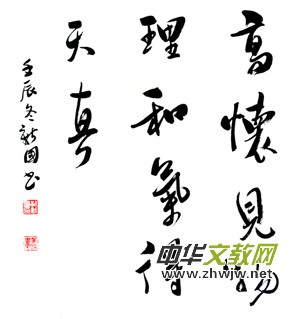 高懷見物
理和氣得
天真
壬辰冬新国书
中华文教网
www.zhwjw.net